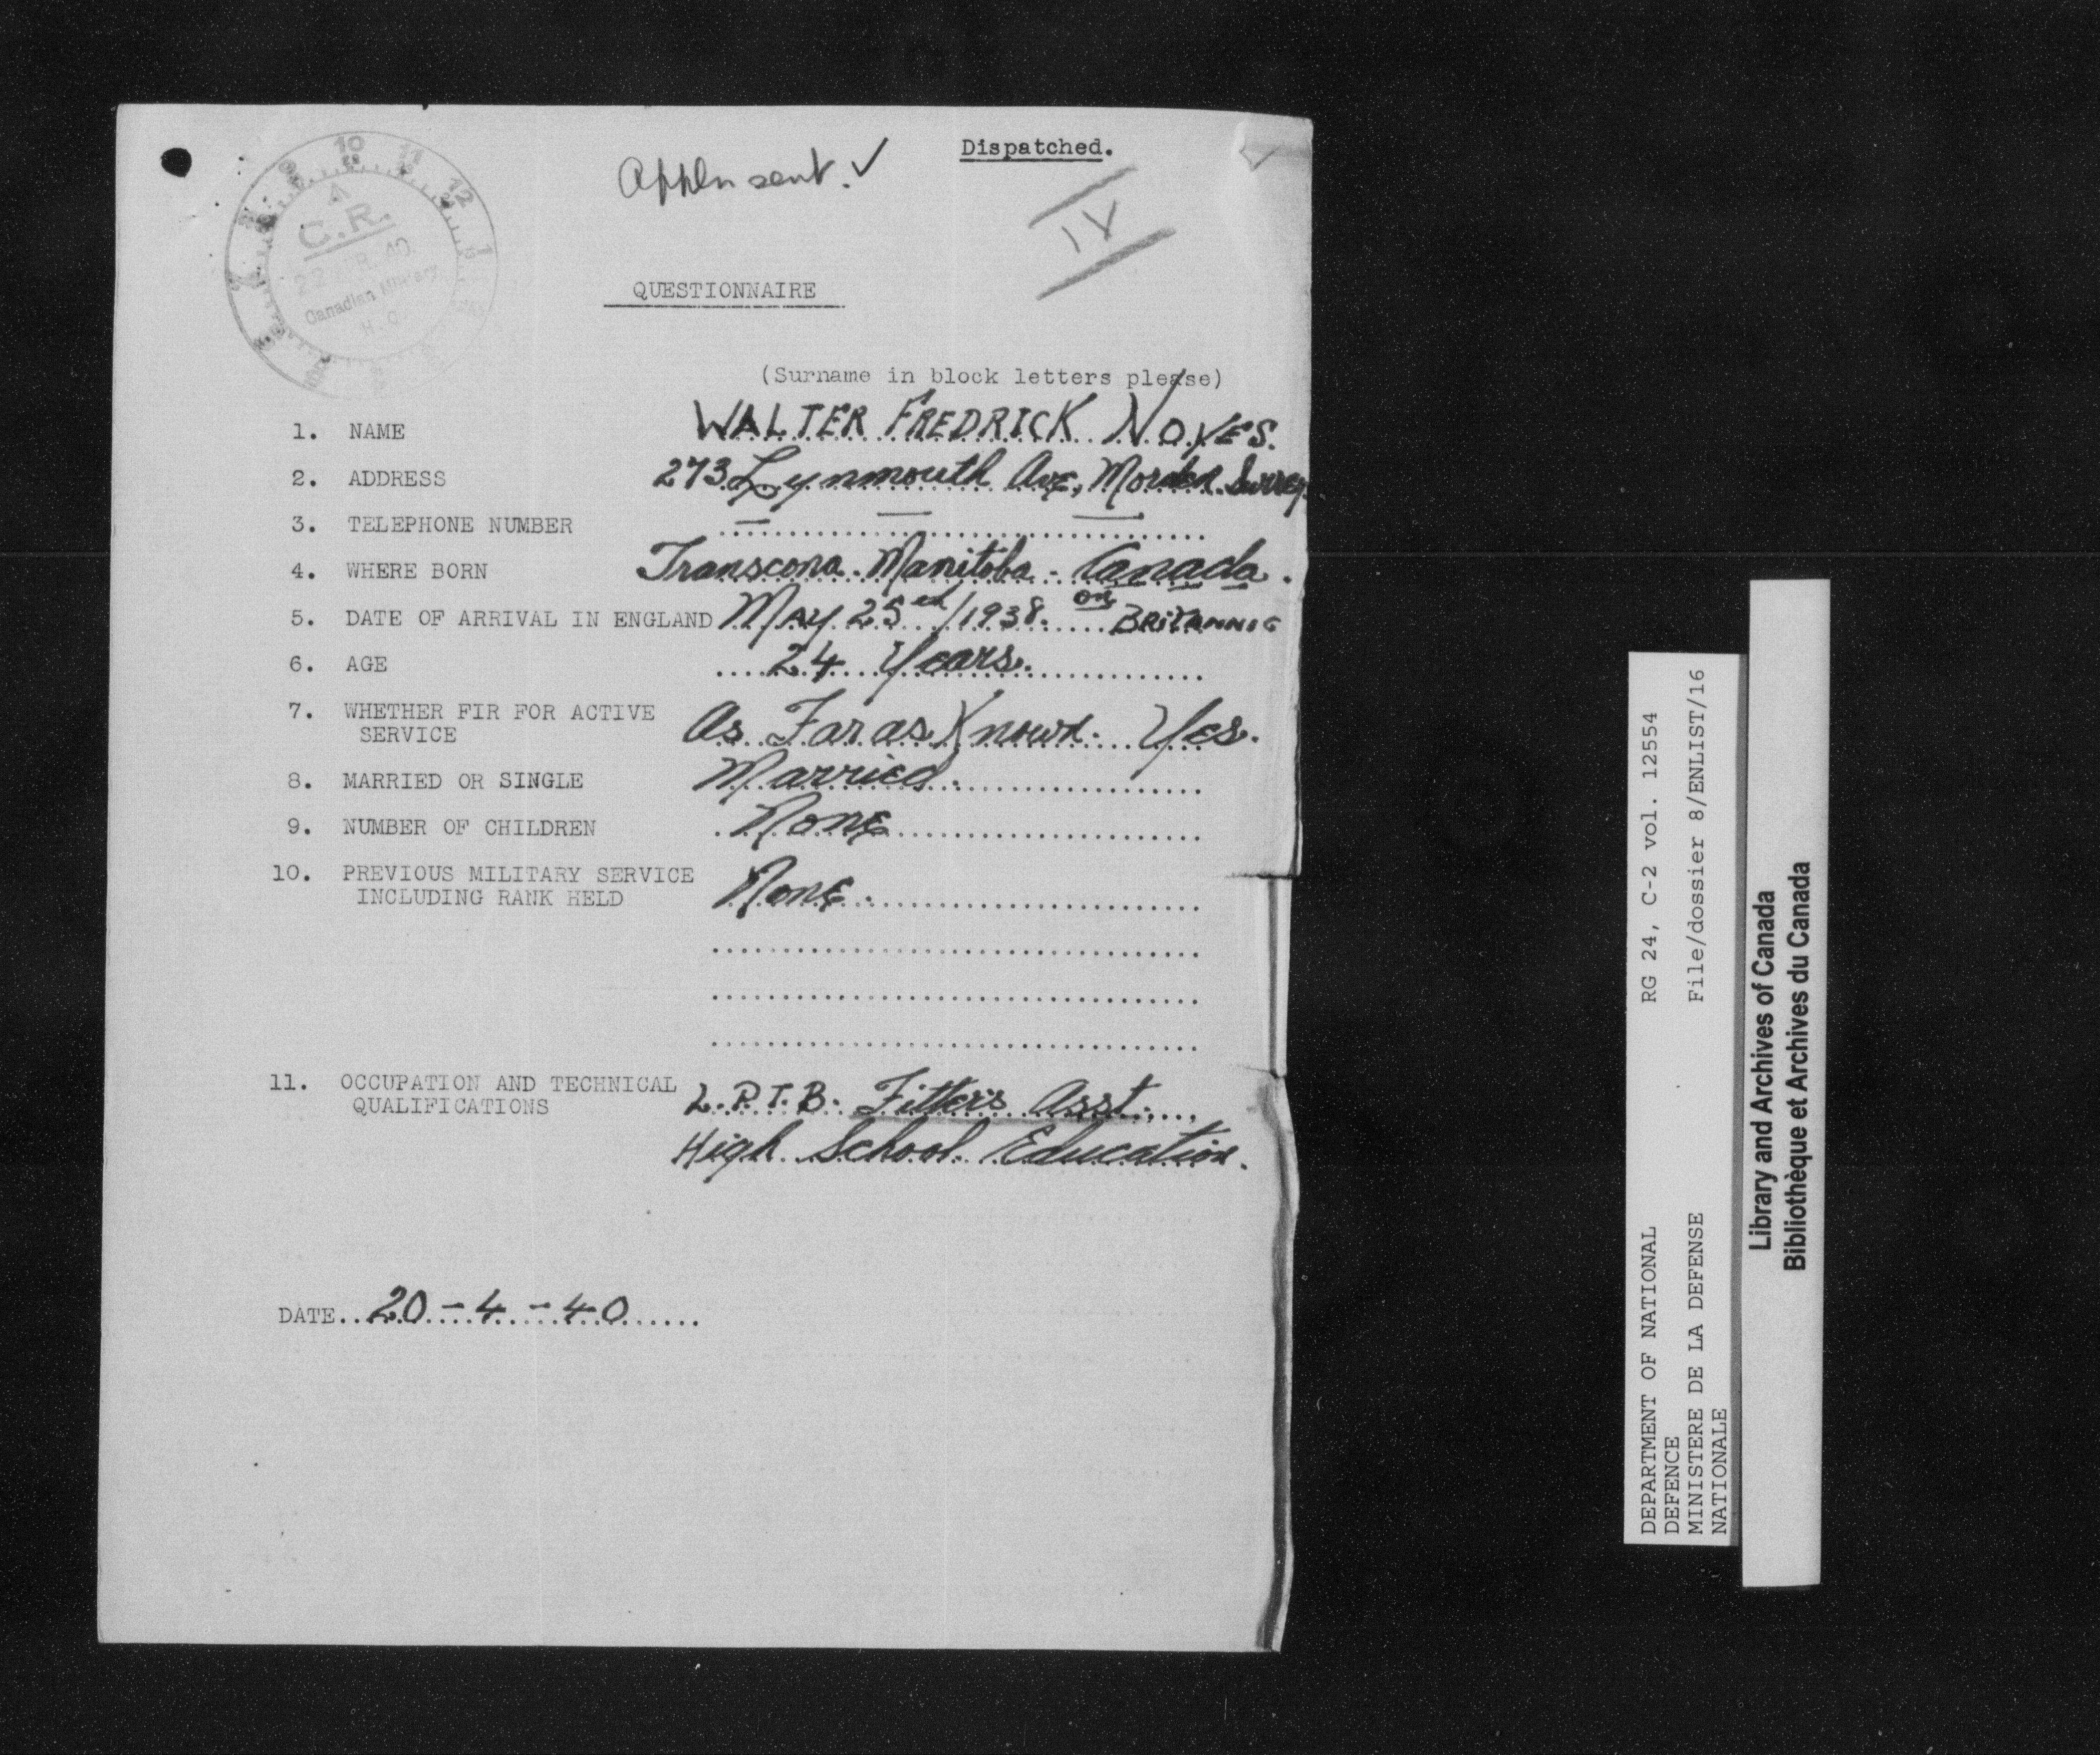 Dispatched.
Appln sent. ✓
IV
10 11 12 1
C.R.
22 APR. 40.
Canadian Military
H.Q.
QUESTIONNAIRE
(Surname in block letters please)
1. NAME WALTER FREDRICK NOYES.
2. ADDRESS 273 Lynmouth Ave, Morden. Surrey.
3. TELEPHONE NUMBER — — —
4. WHERE BORN Transcona. Manitoba - Canada.
5. DATE OF ARRIVAL IN ENGLAND MAY 25th/1938. on BRITANNIC
6. AGE 24 Years.
7. WHETHER FIR FOR ACTIVE As Far as Known. Yes.
SERVICE
8. MARRIED OR SINGLE Married.
9. NUMBER OF CHILDREN None
10. PREVIOUS MILITARY SERVICE None.
INCLUDING RANK HELD
11. OCCUPATION AND TECHNICAL L.P.T.B. Fitter's Asst.
QUALIFICATIONS
High School Education.
DATE 20-4-40
DEPARTMENT OF NATIONAL RG 24, C-2 vol. 12554
DEFENCE
MINISTERE DE LA DEFENSE File/dossier 8/ENLIST/16
NATIONALE
Library and Archives of Canada
Bibliothèque et Archives du Canada